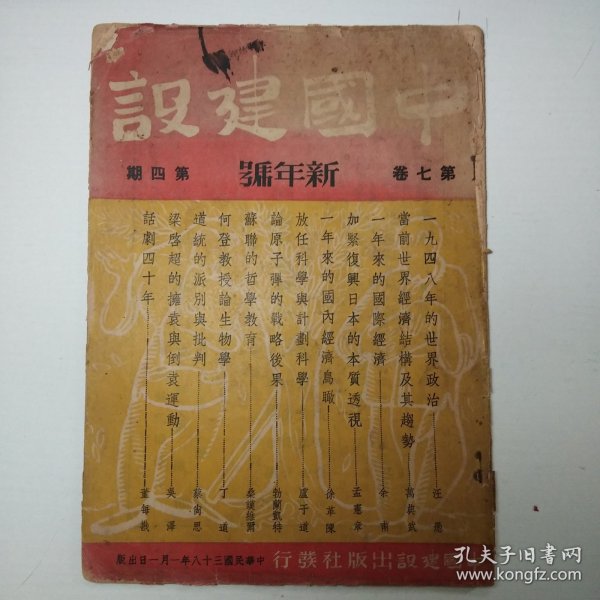 中國建設
第七卷 新年號 第四期
一九四八年的世界政治…………汪
當前世界經濟結構及其趨勢…………萬
一年來的國際經濟…………余南
加緊復興日本的本質透視…………孟憲章
一年來的國內經濟鳥瞰…………徐革陳
放任科學與計劃科學…………盧于道
論原子彈的戰略後果…………勃蘭凱特
蘇聯的哲學教育…………桑謨維爾
何登教授論生物學…………丁道
道統的派別與批判…………蔡尚思
梁啓超的擁袁與倒袁運動…………吳澤
話劇四十年…………董每戡
國建設出版社發行 中華民國三十八年一月一日出版
孔夫子旧书网
www.kongfz.com